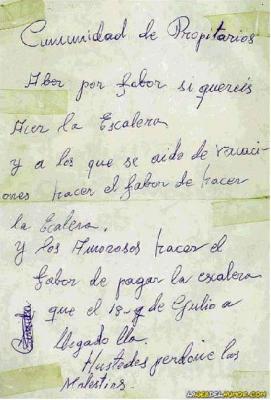 Comunidad de Propitarios
Aber por fabor si quereis
Acer la Escalera
y a los que se aido de vacaci
ones hacer el fabor de hacer
la Ecalera.
Y los Amorosos hacer el
fabor de pagar la escalera
que el 18 y de Gulio a
llegado lla.
Hustedes perdone las
Molestias
LAWEBDELHUMOR.COM